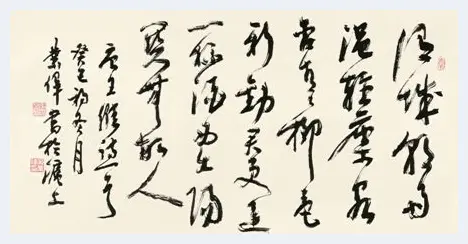 渭城朝雨
浥輕塵客
舍青々柳色
新勸君更
一杯酒西出陽
關無故人
唐王維詩一首
癸巳初冬月
業偉書於滬上